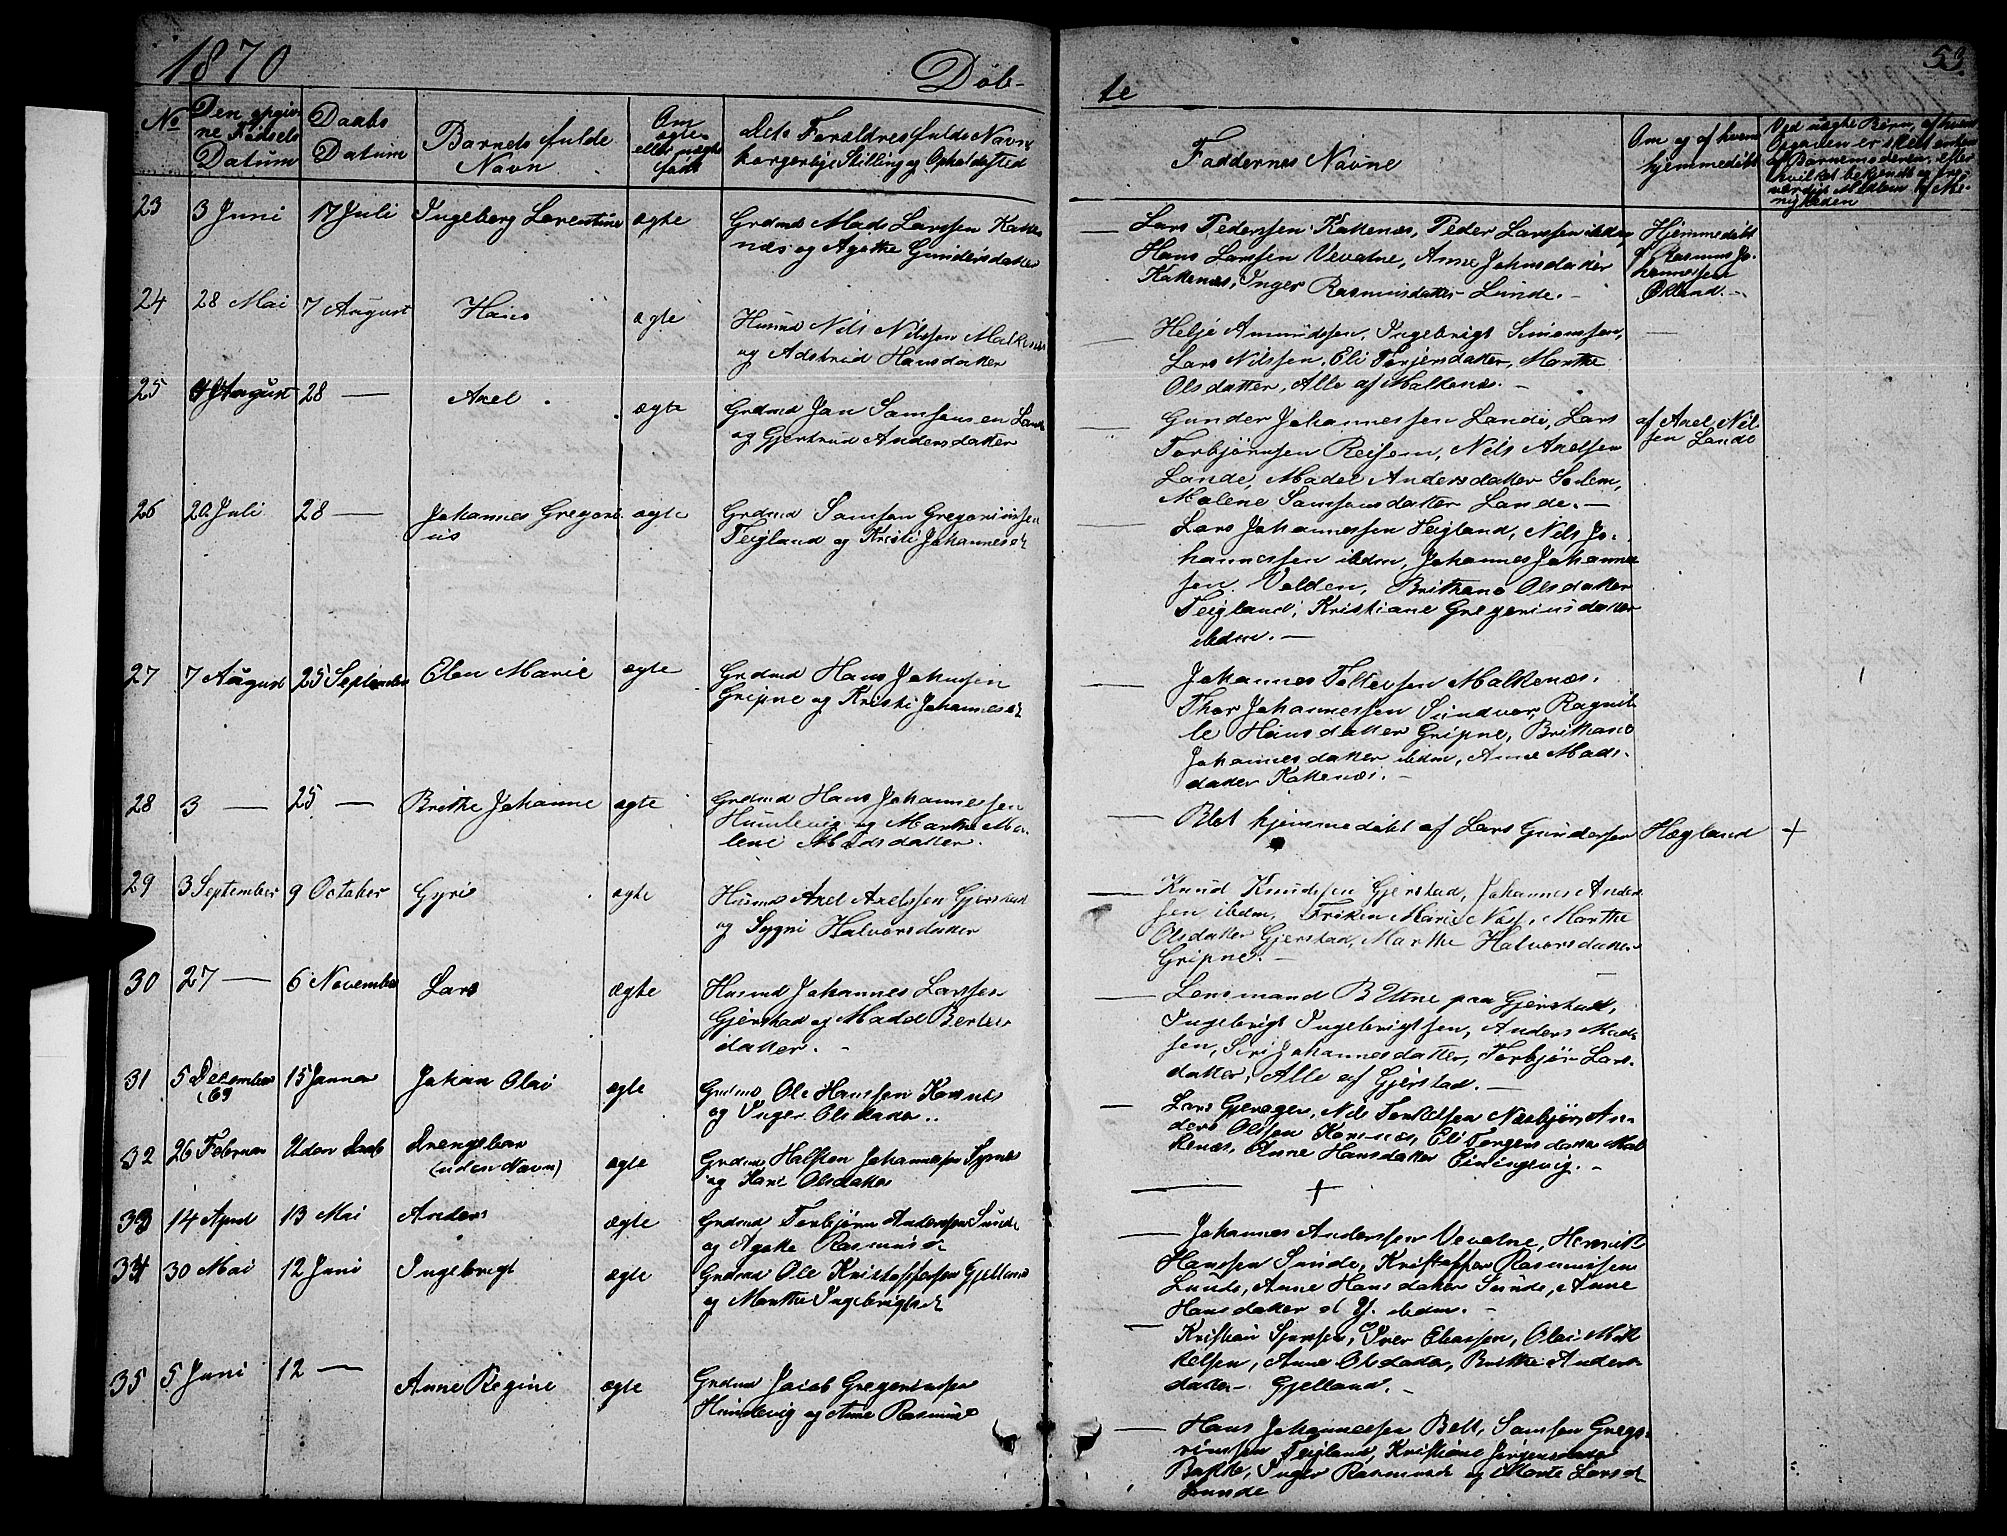 1870
Døb-
te
53.
No
Den opgiv-
ne Fødsels
Datum
Daabs
Datum
Barnets fulde
Navn
Om
ægte
eller uægte
født
Dets Forældres fulde Navn
borgerlige Stilling og Opholdssted
Faddernes Navne
Om og af hvem
hjemmedøbt
Ved uægte Børn, af hvem
Opgaven er skeet enten
af Barnemoderen, eller
hvilket bekjendt og tro-
værdigt Medlem af Me-
nigheden
23 3 Juni 17 Juli Ingeborg Lorentine ægte
Grdmd Mads Larssen Katte
næs og Agathe Gundersdatter
Lars Pederssen Kattenæs, Peder Larssen ibdm,
Hans Larssen Vevatne, Anne Johnsdatter
Kattenæs, Inger Rasmusdatter Lunde. -
Hjemmedøbt
af Rasmus Jo-
hannessen
Økland. -
24 28 Mai 7 August Hans ægte
Husmd Nils Nilssen Malkenæs
og Adstrid Hansdatter
Helje Amundssen, Ingebrigt Simonssen,
Lars Nilssen, Eli Torjersdatter, Marthe
Olsdatter, Alle af Malkenæs. -
25 August 28 — Axel ægte
Grdmd Jan Samsonsen Lande
og Gjertrud Andersdatter
Gunder Johannessen Lande, Lars
Torbjørnssen Reisem, Nils Axelsen
Lande, Madel Andersdatter Solem,
Malene Samsonsdatter Lande. -
af Axel Nil-
sen Lande
26 20 Juli 28 — Johannes Gregori-
us ægte
Grdmd Samson Gregoriussen
Teigland og Kristi Johannesd.
Lars Johannessen Teigland, Nils Jo-
hannessen ibdm, Johannes Johannes
sen Valden, Brithane Olsdatter
Teigland, Kristiane Gregoriusdatter
ibdm. -
27 7 August 25 September Elen Marie ægte
Grdmd Hans Johnssen
Gripne og Kristi Johannesd.
Johannes Tollevsen Malkenæs,
Thor Johannessen Sundvor, Ragnil-
le Hansdatter Gripne, Brithane
Johannesdatter ibdm, Anne Mads-
datter Kattenæs. -
28 3 — 25 — Brithe Johanne ægte
Grdmd Hans Johannessen
Humlevig og Marthe Ma-
lene Madsdatter.
Blot hjemmedøbt af Lars Gunderssen Hægland +
29 3 September 9 October Gyri ægte
Husmd Axel Axelssen Gjerstad
og Sygni Halvorsdatter
Knud Knudssen Gjerstad, Johannes Anders
sen ibdm, Marie, Marthe
Olsdatter Gjerstad, Marthe Halvorsdatter
Gripne. -
30 27 — 6 November Lars ægte
Husmd Johannes Larssen
Gjerstad og Madel Berten
datter. -
Lensmand B Utne paa Gjerstad,
Ingebrigt Ingebrigtsen, Anders Mad-
sen, Siri Johannesdatter, Torbjør Lars-
datter, Alle af Gjerstad. -
31 5 December
69 15 Januar Johan Olai ægte
Grdmd Ole Hanssen
og Inger Olsdatter.
Lars Gjerager, Nils An-
ders Olssen Eli Torgersdatter Mal
kenæs, Anne Hansdatter Einingevig. -
32 26 Februar Uden Daab Drengebarn
(uden Navn) ægte
Grdmd Halsten Johannessen
og Kari Olsdatter
— +
33 14 April 13 Mai Anders ægte
Grdmd Torbjørn Anderssen Sunde
og Agathe Rasmusd.
Johannes Anderssen Vevatne, Henrik
Hanssen Sunde, Kristoffer Rasmussen
Lunde, Anne Hansdatter Sunde, Anne
Hansdatter d. Y. ibdm. -
34 30 Mai 12 Juni Ingebrigt ægte
Grdmd Ole Kristoffersen Gjelland
og Marthe Ingebrigtsd.
Kristian Iver Eliassen, Olai Mik
kelsen, Anne Olsdatter, Brithe Anders-
datter Gjelland. -
35 5 Juni 12 — Anne Regine ægte
Grdmd Jacob Gregoriussen
Humlevig og Anne Rasmusd
Hans Johannessen Samson Grego-
riussen Teigland, Kristiane Jørgensdatter
Bakke, Inger Rasmusd. og Marte Larsd
Lunde